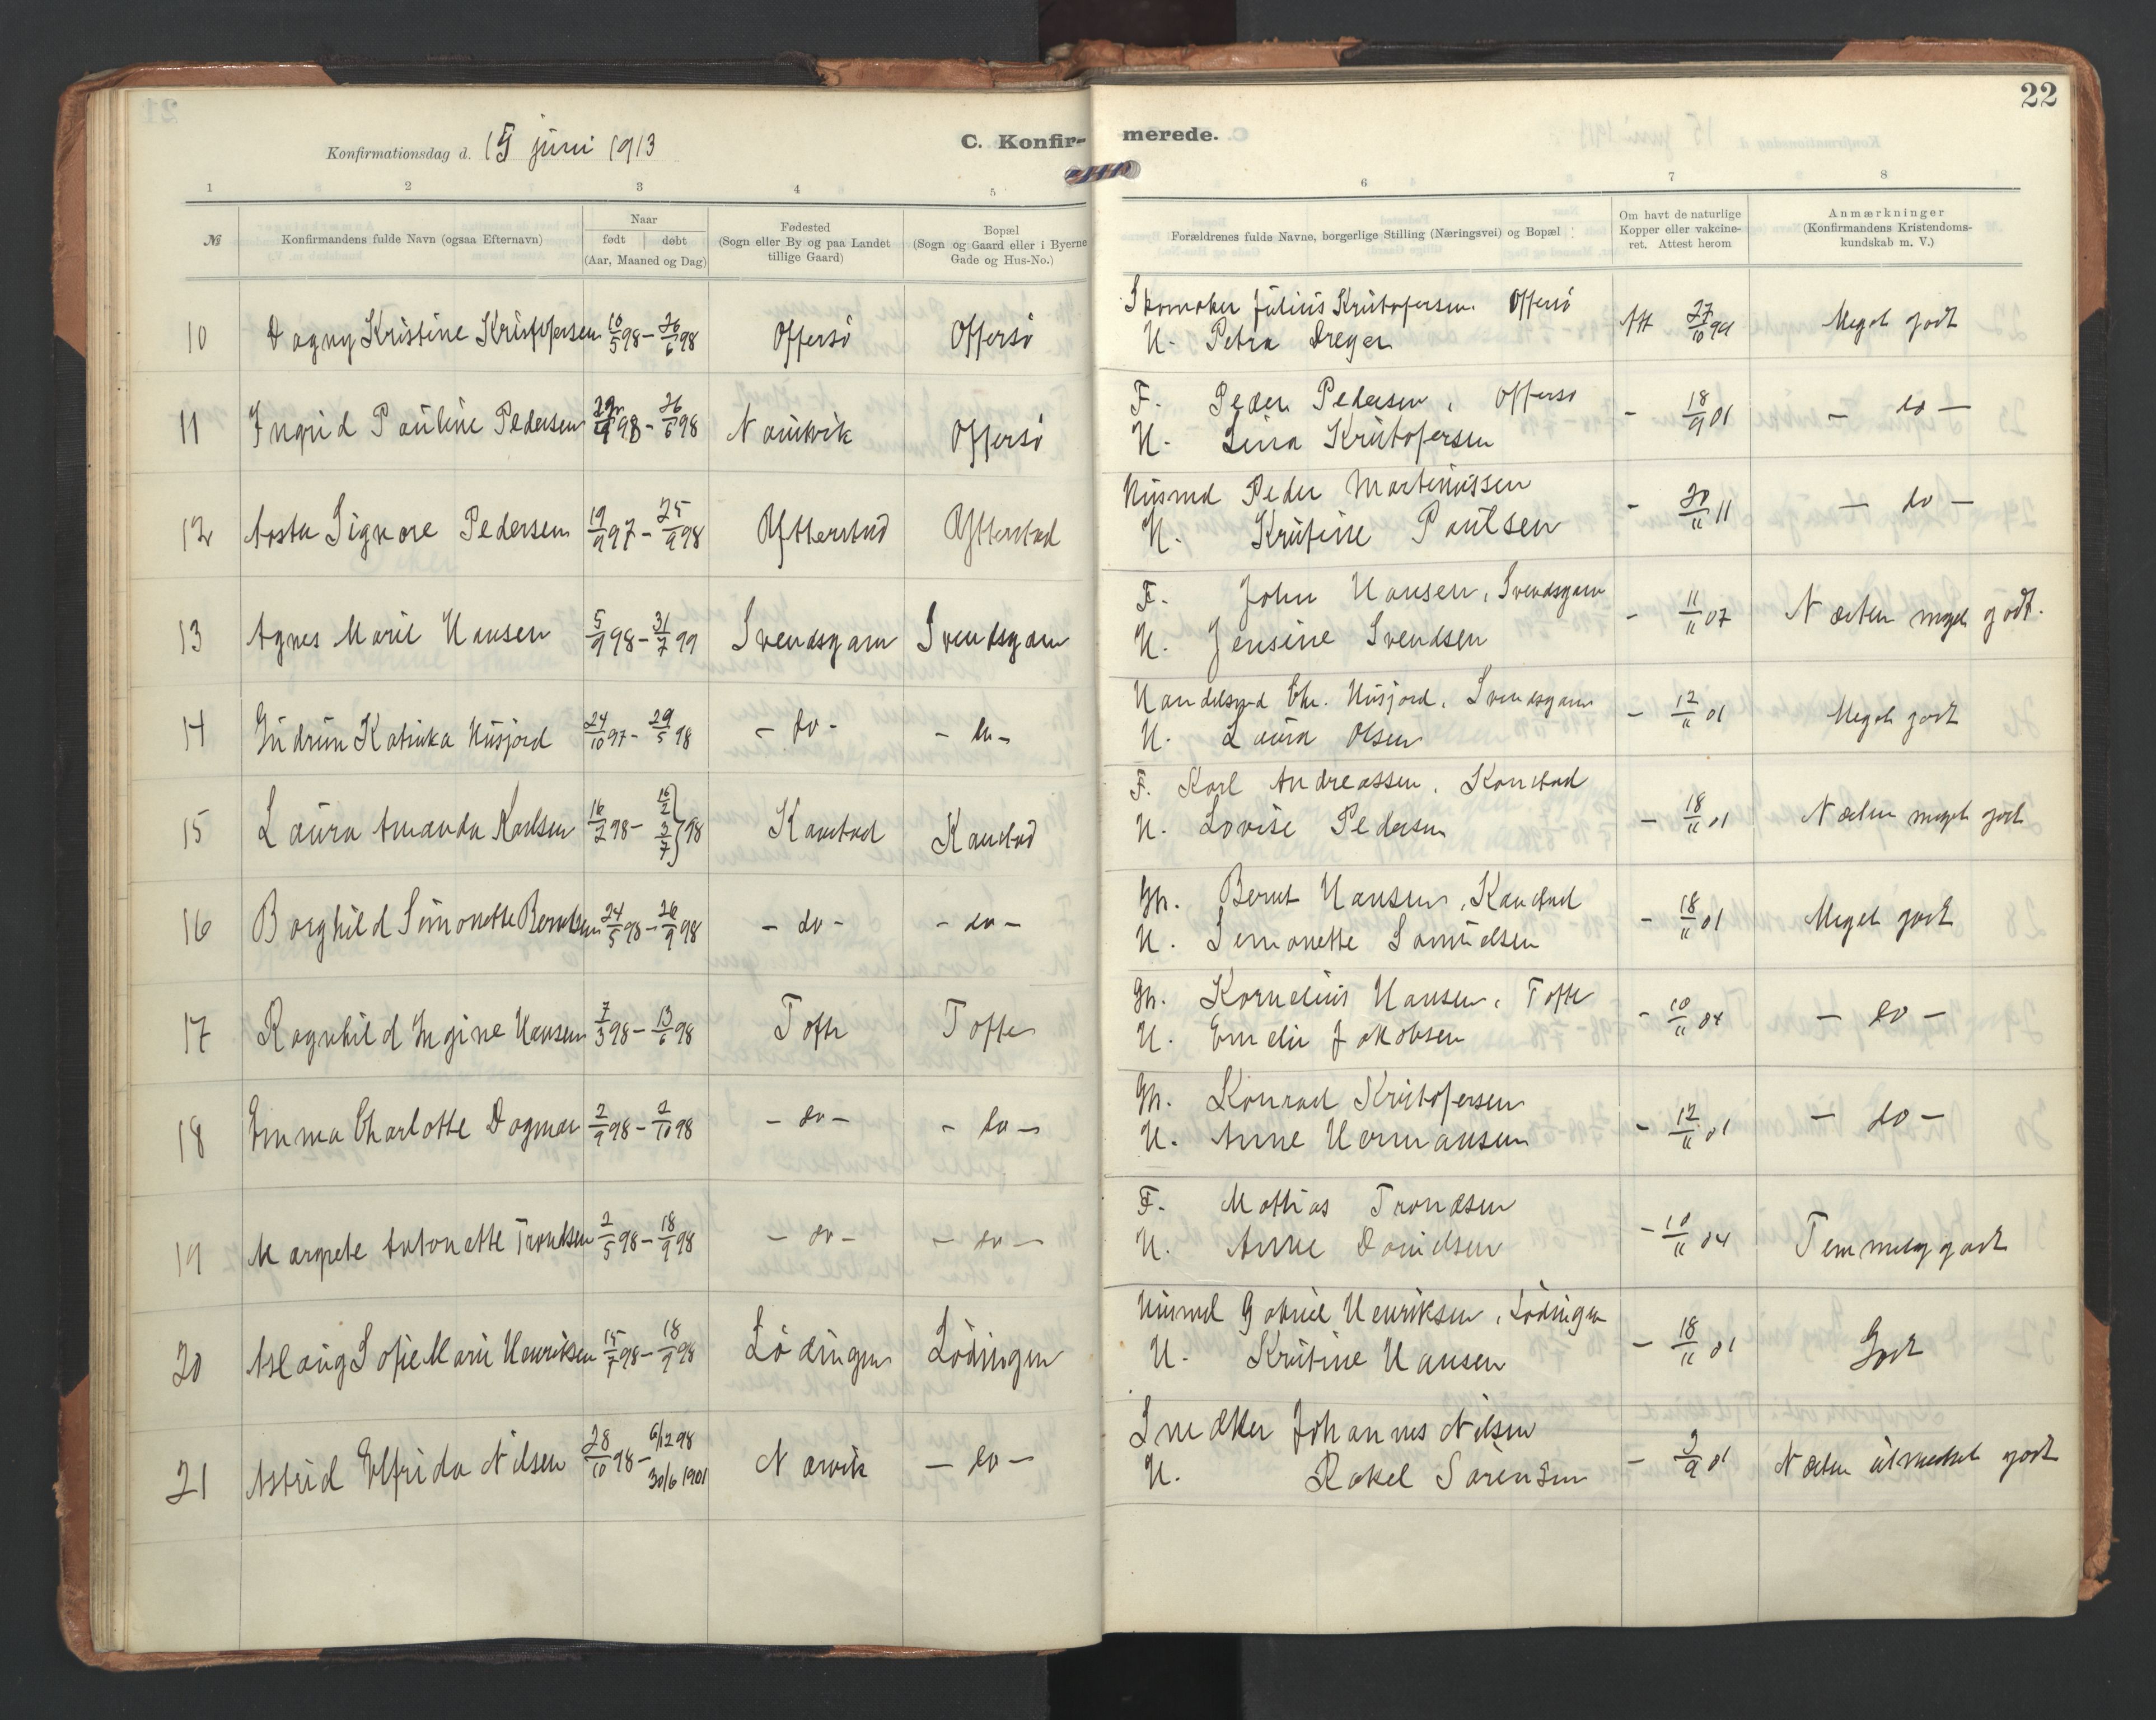 22
Konfirmationsdag d. 15 juni 1913
C. Konfir- merede.
1 2 3 4 5 6 7 8
№
Konfirmandens fulde Navn (ogsaa Efternavn)
Naar
født | døbt
(Aar, Maaned og Dag)
Fødested
(Sogn eller By og paa Landet
tillige Gaard)
Bopæl
(Sogn og Gaard eller i Byerne
Gade og Hus-No.)
Forældrenes fulde Navne, borgerlige Stilling (Næringsvei) og Bopæl
Om havt de naturlige
Kopper eller vakcine-
ret. Attest herom
Anmærkninger
(Konfirmandens Kristendoms-
kundskab m. V.)
10 Dagny Kristine Kristofersen 10/5 98 – 26/6 98 Offersö Offersö Skomaker Julius Kristofersen Offersö Att 27/10 94 Meget godt
H. Petra Dreyer
11 Ingrid Pauline Pedersen 98 – 26/6 98 Offersö F. Peder Pedersen, Offersö – 18/9 01 – do –
H. Lina Kristofersen
12 Aasta Signore Pedersen 19/9 97 – 25/9 98 Ytterstad Ytterstad Husmd Peder Martinussen – 20/11 11 – do –
H. Kristine Paulsen
13 Agnes Marie Hansen 5/9 98 – 31/7 99 Svendsgam Svendsgam F. John Hansen, Svendsgam – 11/11 07 Næsten meget godt.
H. Jensine Svendsen
14 Gudrun Katinka Husjord 24/10 97 – 29/5 98 – do – – do – Handelsmd Chr. Husjord, Svendsgam – 12/11 01 Meget godt
H. Laura Olsen
15 Laura Amanda Karlsen 16/2 98 – 16/2 } 3/7 } 98 Kanstad Kanstad F. Karl Andreassen, Kanstad – 18/11 01 Næsten meget godt
H. Lovise Pedersen
16 Borghild Simonette Berntsen 24/5 98 – 26/9 98 – do – – do – Gb. Bernt Hansen, Kanstad – 18/11 01 Meget godt
H. Simonette Samuelsen
17 Ragnhild Ingine Hansen 7/3 98 – 13/6 98 Tofte Tofte Gb. Kornelius Hansen, Tofte – 10/11 04 – do –
H. Emelie Jakobsen
18 Emma Charlotte Dagmar 2/9 98 – 2/10 98 – do – – do – Gb. Konrad Kristofersen – 12/11 01 – do –
H. Anne Hermansen
19 Margrete Antonette Trondsen 2/5 98 – 18/9 98 – do – – do – F. Mathias Trondsen – 10/11 04 Temmelig godt
H. Anne Danielsen
20 Aslaug Sofie Marie Henriksen 15/7 98 – 18/9 98 Lödingen Lödingen Husmd Gabriel Henriksen, Lödingen – 18/11 01 Godt
H. Kristine Hansen
21 Astrid Elfrida Nilsen 28/10 98 – 6/12 98 30/6 1901 Narvik – do – Snedker Johannes Nilsen – 3/9 01 Næsten udmerket godt
H. Rakel Sörensen